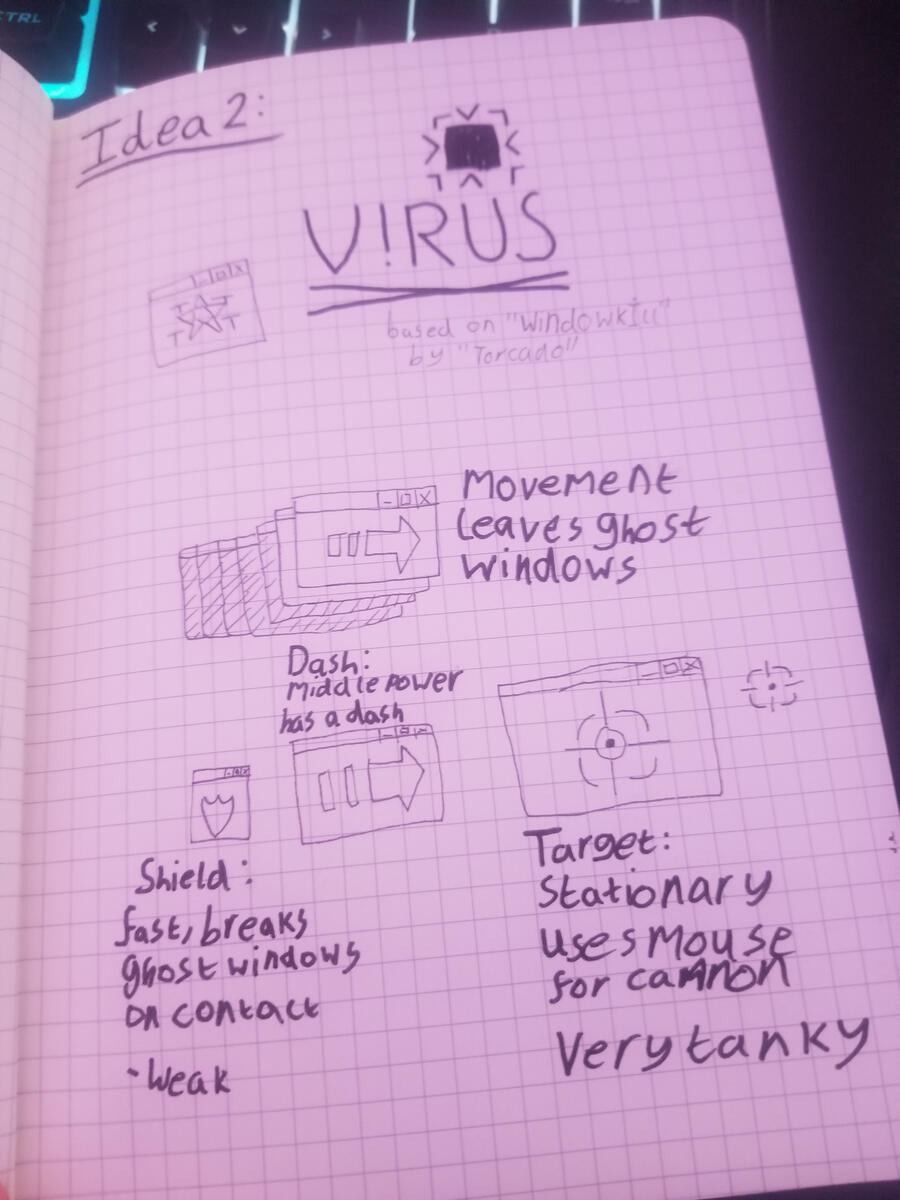 CTRL
Idea 2:
V!RUS
based on "Windowkill"
by "Torcado"
Movement
leaves ghost
windows
Dash:
Middle power
has a dash
Shield:
fast, breaks
ghost windows
on contact
- weak
Target:
Stationary
uses mouse
for cannon
Very tanky